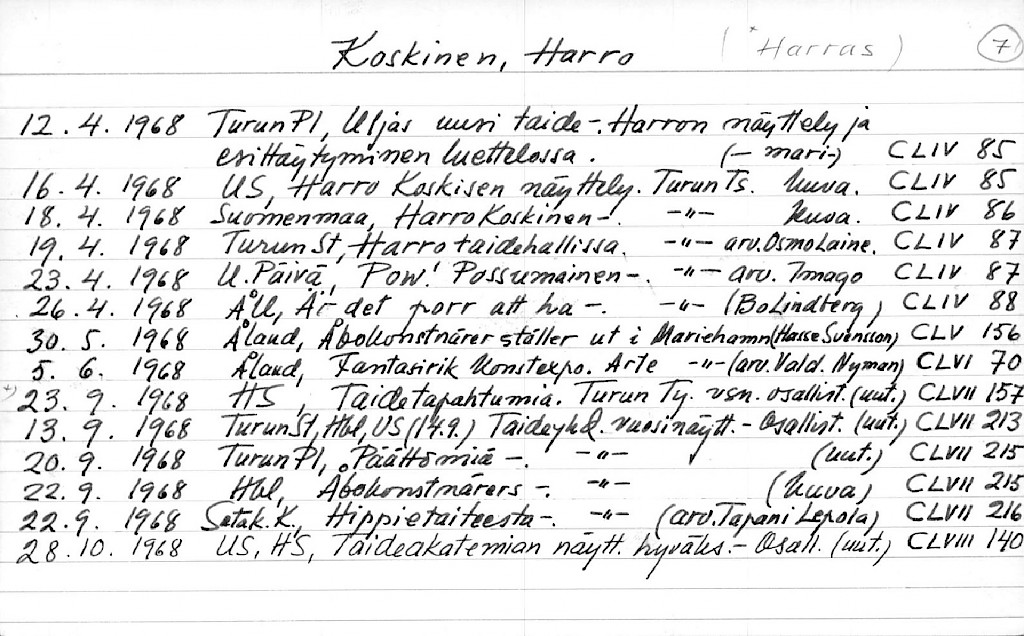 Koskinen, Harro (*Harras) 7
12. 4. 1968 Turun Pl, Uljas uusi taide-. Harron näyttely ja
esittäytyminen luettelossa. (- mari-) CLIV 85
16. 4. 1968 US, Harro Koskisen näyttely. Turun Ts. kuva. CLIV 85
18. 4. 1968 Suomenmaa, Harro Koskinen-. -"- kuva. CLIV 86
19. 4. 1968 Turun St, Harro taidehallissa. -"- arv. Osmo Laine. CLIV 87
23. 4. 1968 U. Päivä, Pow! Possumainen-. -"- arv. Imago CLIV 87
26. 4. 1968 ÅU, Är det porr att ha -. -"- (Bo Lindberg) CLIV 88
30. 5. 1968 Åland, Åbokonstnärer ställer ut i Mariehamn (Hasse Svensson) CLV 156
5. 6. 1968 Åland, Fantasirik konstexpo. Arte -"- (arv. Vald. Nyman) CLVI 70
*) 23. 9. 1968 HS, Taidetapahtumia. Turun Ty. vsn. osallist. (uut.) CLVII 157
13. 9. 1968 Turun St, Hbl, US (14.9.) Taideyhd. vuosinäytt. - Osallist. (uut.) CLVII 213
20. 9. 1968 Turun Pl, Päättömiä -. -"- (uut.) CLVII 215
22. 9. 1968 Hbl, Åbokonstnärers -. -"- (kuva) CLVII 215
22. 9. 1968 Satak. K., Hippietaiteesta-. -"- (arv. Tapani Lepola) CLVII 216
28. 10. 1968 US, HS, Taideakatemian näytt. hyväks. - Osall. (uut.) CLVIII 140